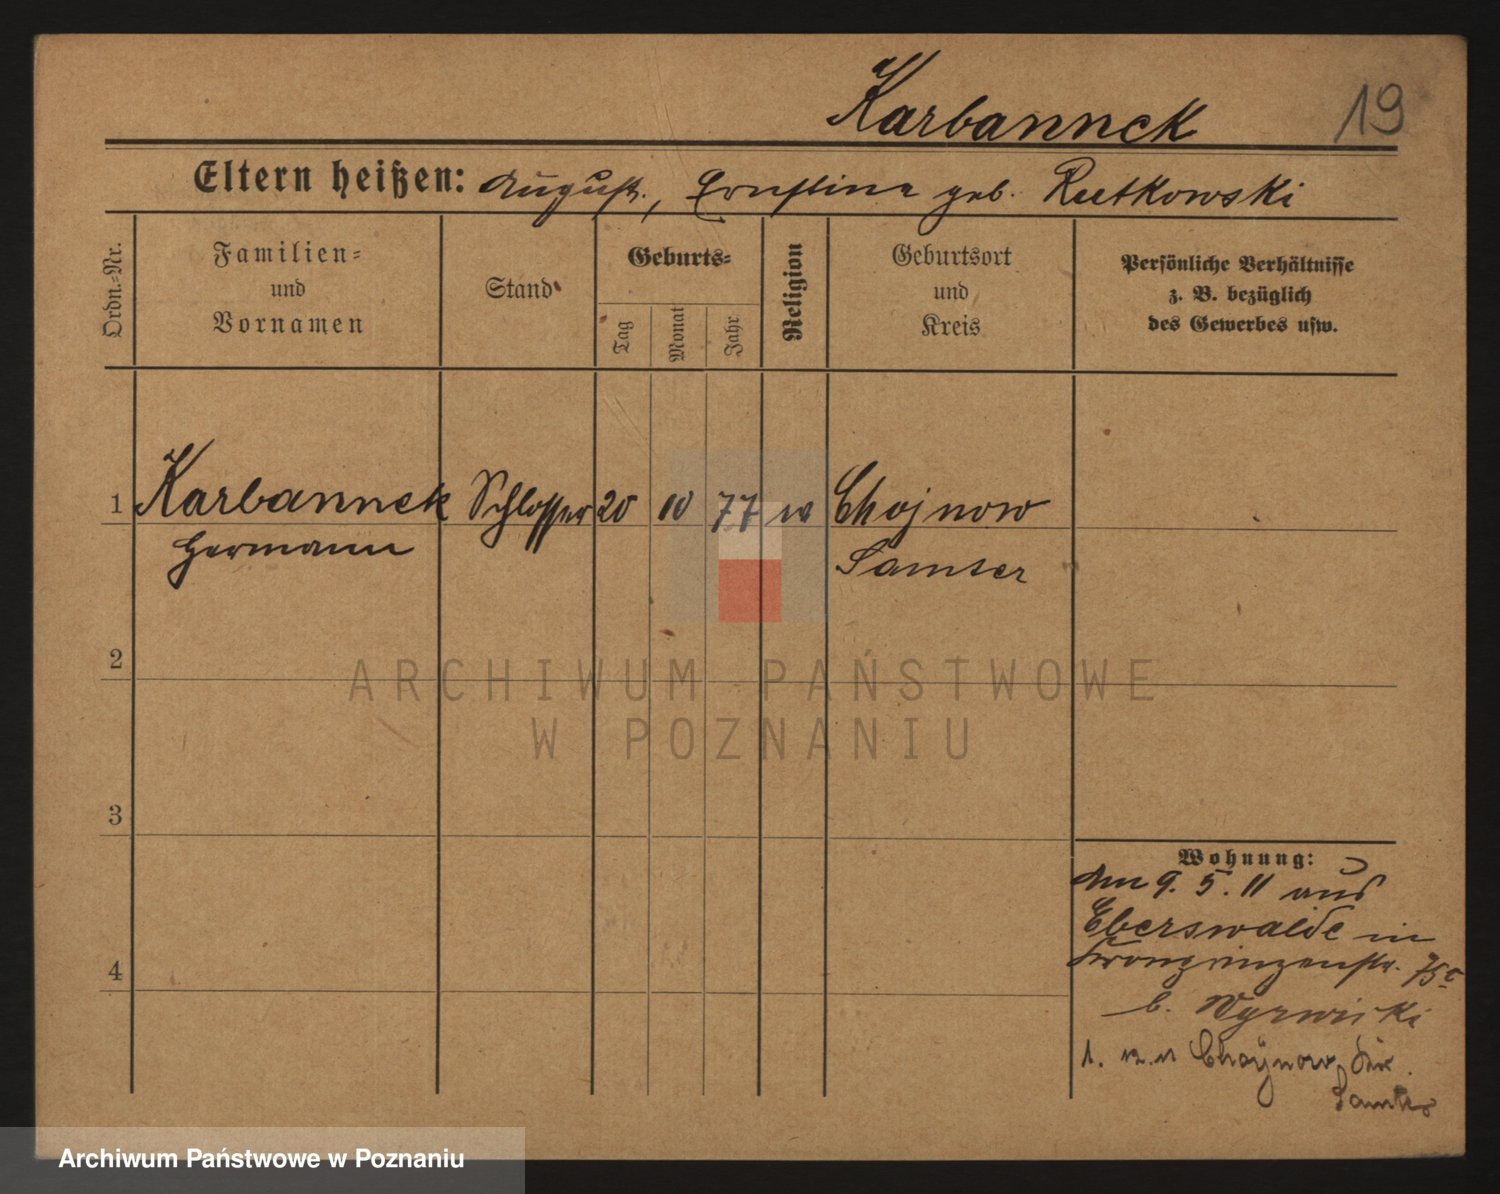 Karbannek
19
Eltern heißen: August., Ernstine geb. Rutkowski
Ordn.=Nr.
Familien=
und
Vornamen
Stand
Geburts=
Tag
Monat
Jahr
Religion
Geburtsort
und
Kreis
Persönliche Verhältnisse
z. B. bezüglich
des Gewerbes usw.
1 Karbannek Schlosser 20 10 77 Chojnow
Hermann Samter
2
3
4
Wohnung:
den 9. 5. 11 aus
Eberswalde in
Kronprinzenstr. 75c
b.
1. 12. 11 Chojnow, Kr.
Samter
ARCHIWUM PAŃSTWOWE
W POZNANIU
Archiwum Państwowe w Poznaniu